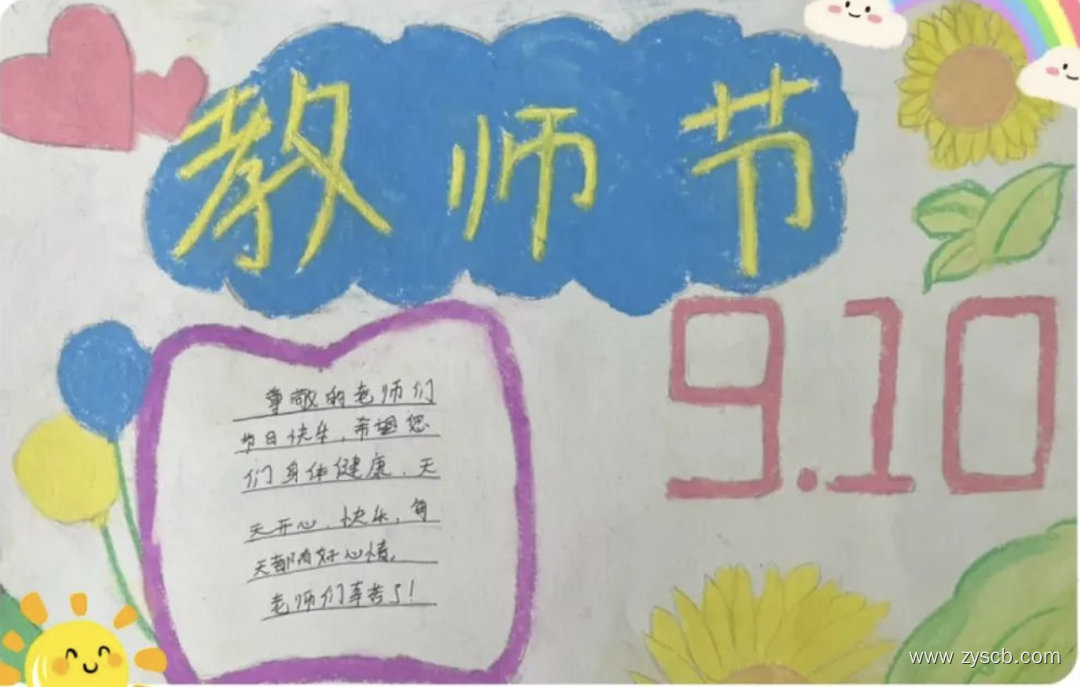 教师节
9.10
尊敬的老师们
节日快乐,希望您
们身体健康、天
天开心、快乐,每
天都有好心情,
老师们辛苦了!
www.zyscb.com